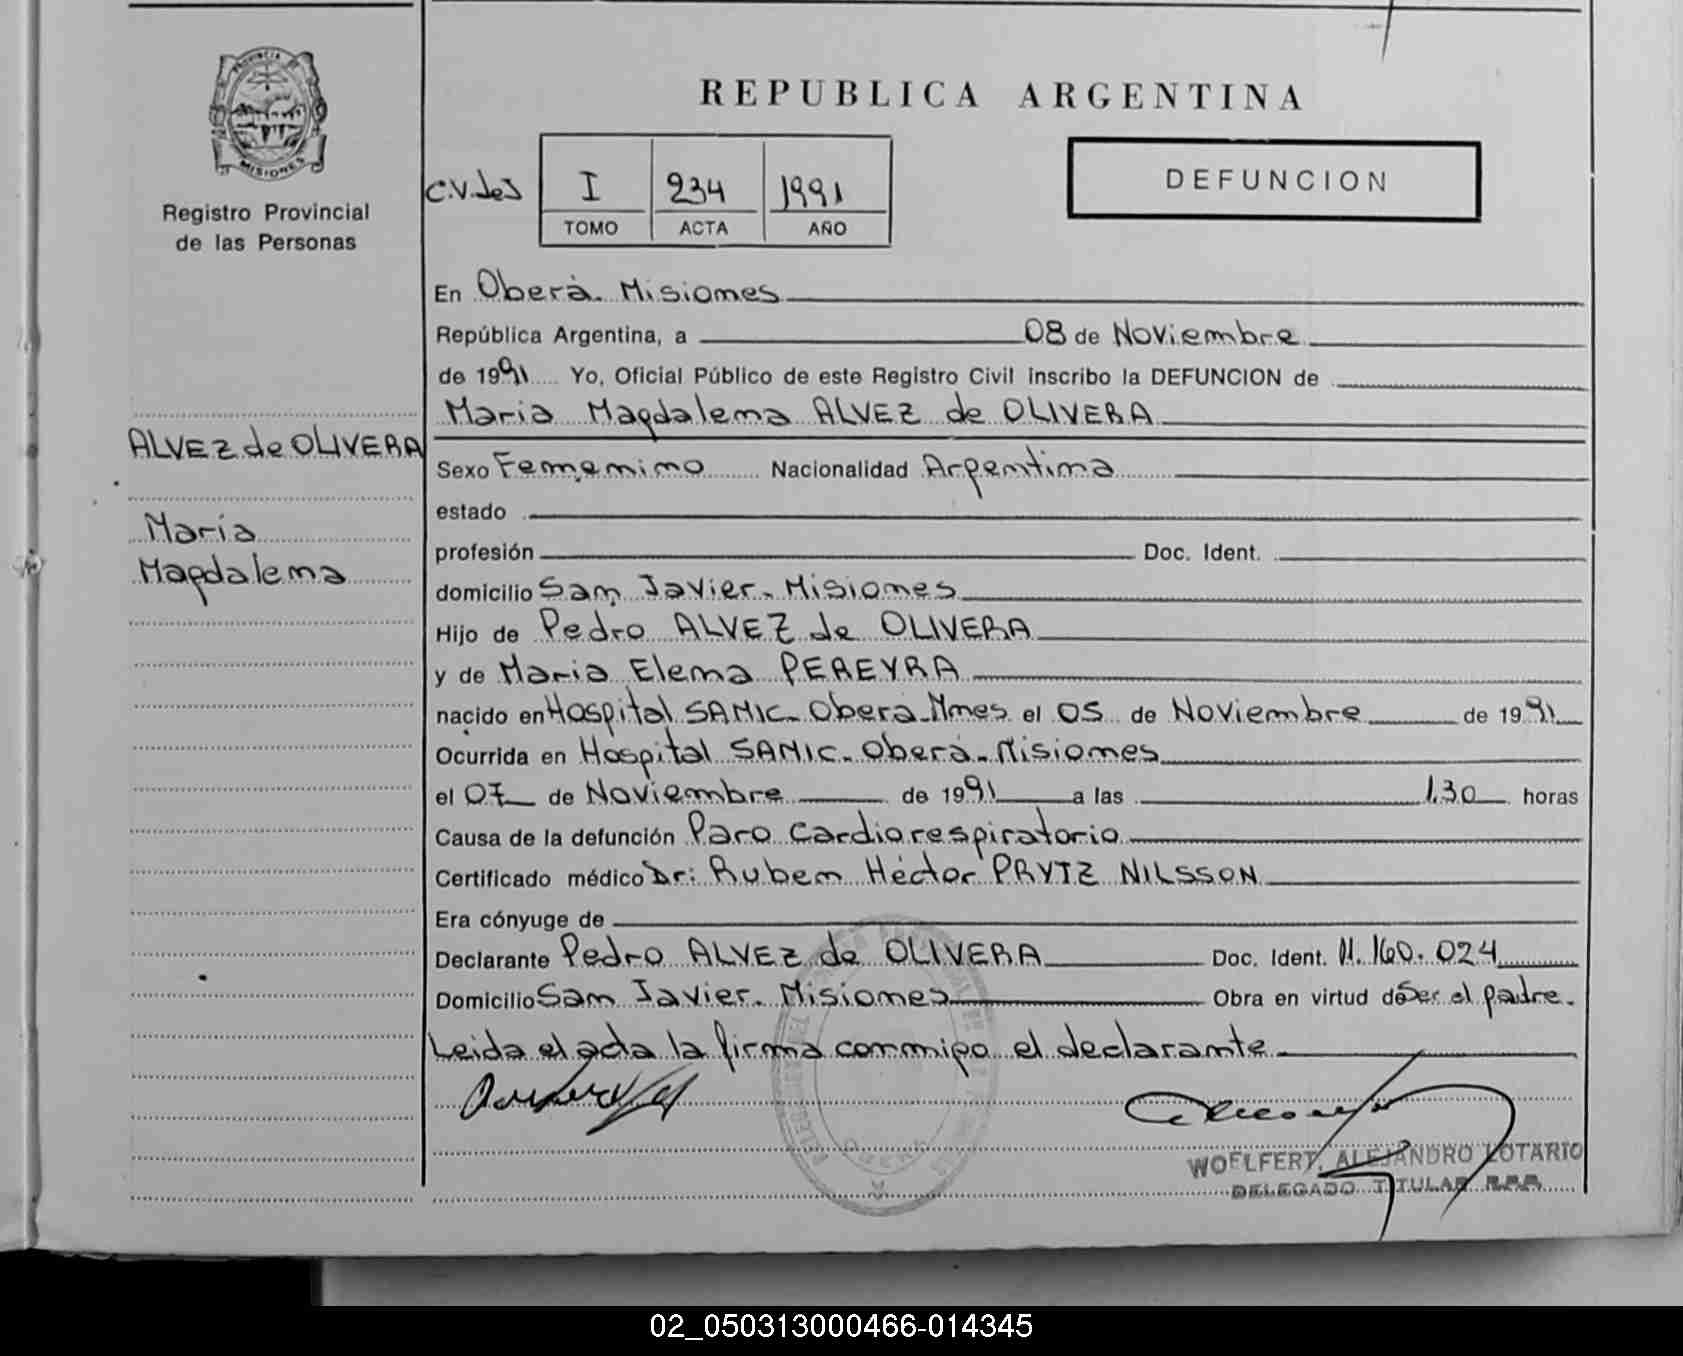 REPUBLICA ARGENTINA
PROVINCIA DE
MISIONES
Registro Provincial
de las Personas
C.V.Jes
I 234 1991
TOMO ACTA AÑO
DEFUNCION
En Oberá. Misiones
República Argentina, a 08 de Noviembre
de 1991 Yo, Oficial Público de este Registro Civil inscribo la DEFUNCION de
Maria Magdalena ALVEZ de OLIVERA
ALVEZ de OLIVERA
Maria
Magdalena
Sexo Femenino Nacionalidad Argentina
estado
profesión Doc. Ident.
domicilio San Javier. Misiones
Hijo de Pedro ALVEZ de OLIVERA
y de Maria Elena PEREYRA
nacido en Hospital SAMIC. Oberá. Mnes el 05 de Noviembre de 1991
Ocurrida en Hospital SAMIC. Oberá. Misiones
el 07 de Noviembre de 1991 a las 1.30 horas
Causa de la defunción Paro Cardiorespiratorio
Certificado médico Dr: Ruben Héctor PRYTZ NILSSON
Era cónyuge de
Declarante Pedro ALVEZ de OLIVERA Doc. Ident. 11.160.024
Domicilio San Javier. Misiones Obra en virtud de Ser el padre.
Leida el acta la firma conmigo el declarante
WOELFERT, ALEJANDRO LOTARIO
DELEGADO TITULAR R.P.P.
02_050313000466-014345